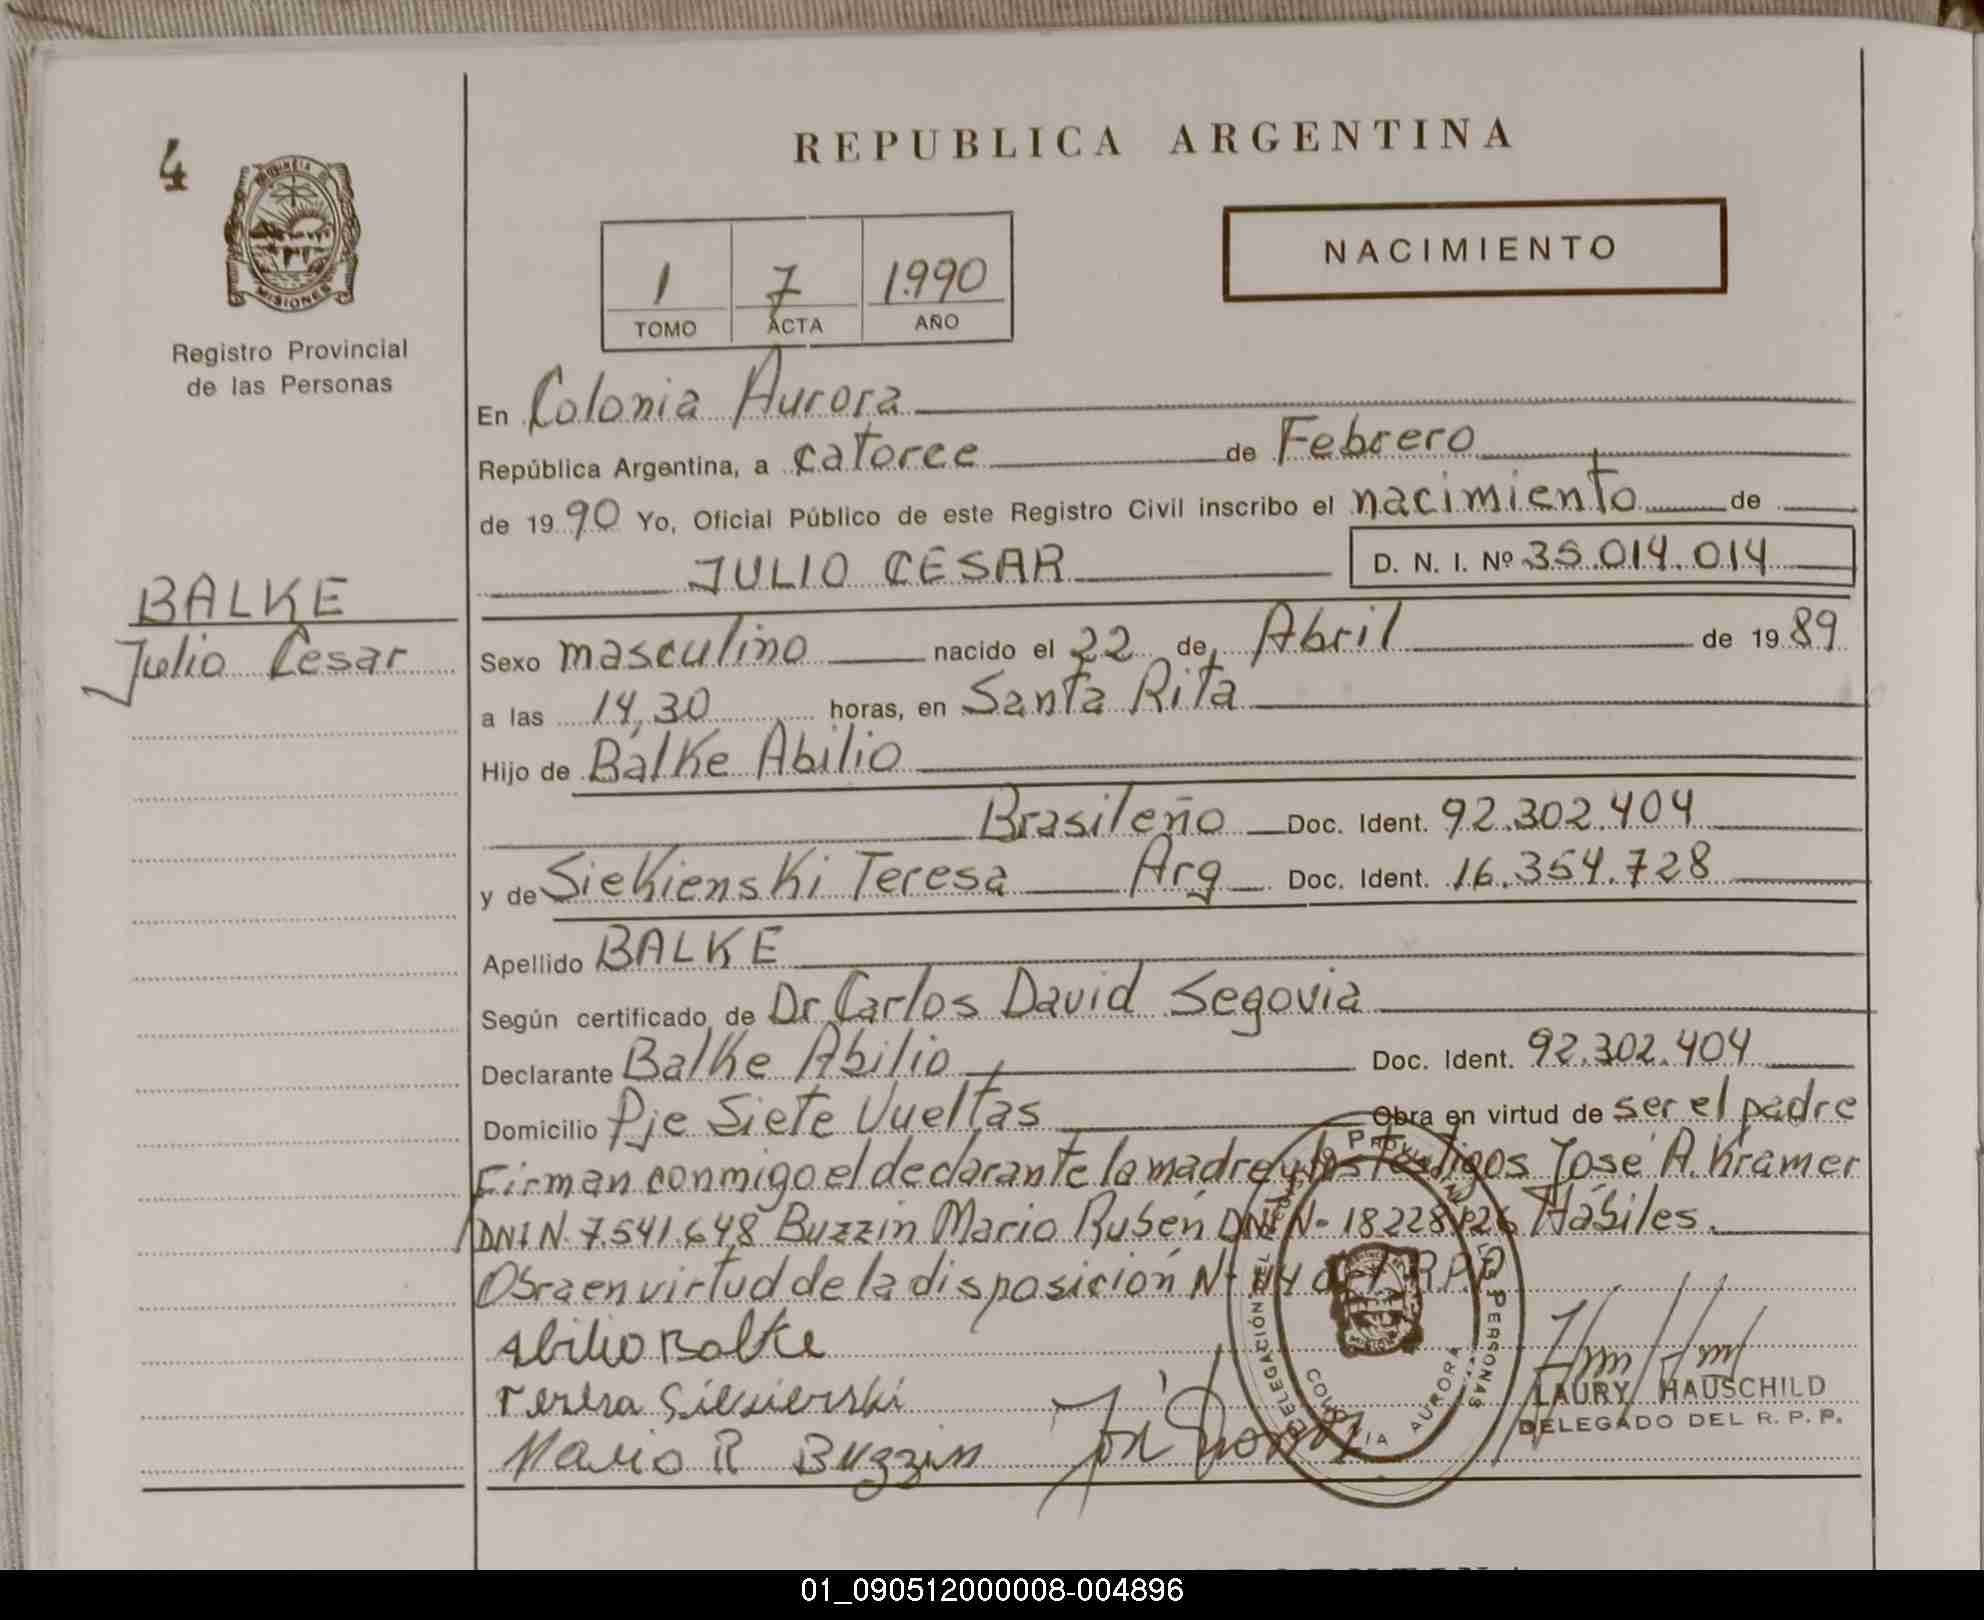 4
REPUBLICA ARGENTINA
PROVINCIA DE
MISIONES
NACIMIENTO
1 7 1.990
TOMO ACTA AÑO
Registro Provincial
de las Personas
En Colonia Aurora
República Argentina, a catorce de Febrero
de 19 90 Yo, Oficial Público de este Registro Civil inscribo el nacimiento de
JULIO CESAR D. N. I. Nº 35.014.014
BALKE
Julio Cesar
Sexo masculino nacido el 22 de Abril de 19 89
a las 14,30 horas, en Santa Rita
Hijo de Balke Abilio
Brasileño Doc. Ident. 92.302.404
y de Siekienski Teresa Arg Doc. Ident. 16.354.728
Apellido BALKE
Según certificado de Dr Carlos David Segovia
Declarante Balke Abilio Doc. Ident. 92.302.404
Domicilio Pje Siete Vueltas Obra en virtud de ser el padre
Firman conmigo el declarante la madre y los testigos José A. Kramer
DNI N. 7.541.648 Buzzin Mario Rubén DNI N- 18228826 Hábiles.
Obra en virtud de la disposición N- 114 del R.P.P
Abilio Balke
Teresa Siekierski
Mario R Buzzin
LAURY HAUSCHILD
DELEGADO DEL R. P. P.
DELEGACIÓN
PERSONAS
COLONIA AURORA
01_090512000008-004896